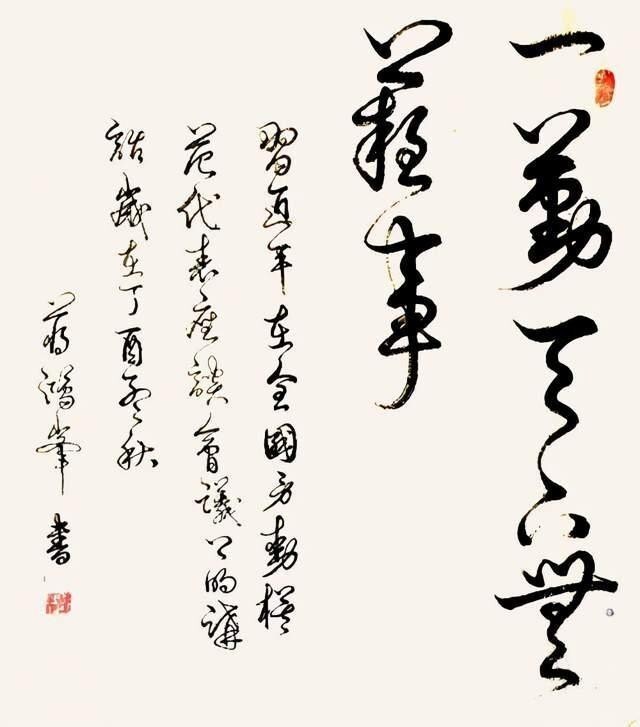 一勤天下無
難事
習近平在全國劳動模
范代表座談會議上的講
話歲在丁酉秋
蔣峯書